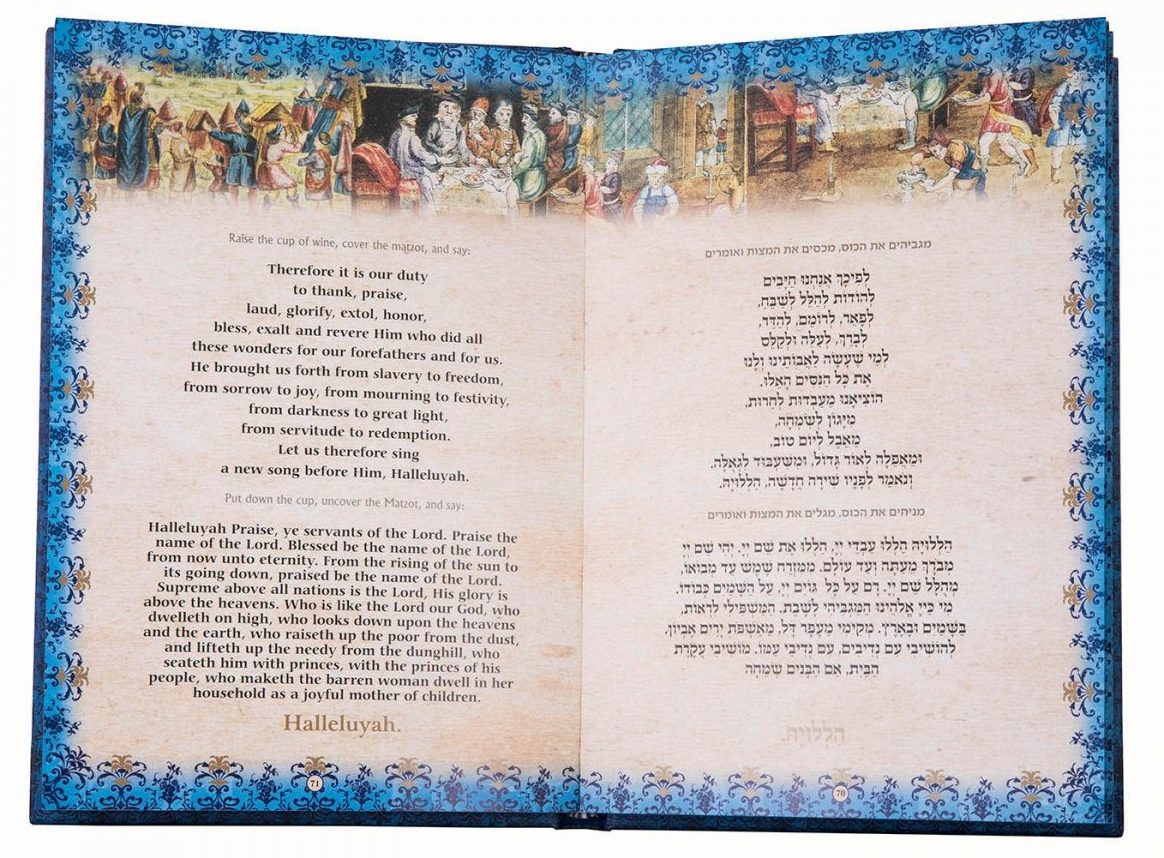 מגביהים את הכוס, מכסים את המצות ואומרים
לְפִיכָךְ אֲנַחְנוּ חַיָּבִים
לְהוֹדוֹת לְהַלֵּל לְשַׁבֵּחַ,
לְפָאֵר, לְרוֹמֵם, לְהַדֵּר,
לְבָרֵךְ, לְעַלֵּה וּלְקַלֵּס
לְמִי שֶׁעָשָׂה לַאֲבוֹתֵינוּ וְלָנוּ
אֶת כָּל הַנִּסִּים הָאֵלּוּ.
הוֹצִיאָנוּ מֵעַבְדוּת לְחֵרוּת,
מִיָּגוֹן לְשִׂמְחָה,
מֵאֵבֶל לְיוֹם טוֹב,
וּמֵאֲפֵלָה לְאוֹר גָּדוֹל, וּמִשִּׁעְבּוּד לִגְאֻלָּה.
וְנֹאמַר לְפָנָיו שִׁירָה חֲדָשָׁה, הַלְלוּיָהּ.
מניחים את הכוס, מגלים את המצות ואומרים
הַלְלוּיָהּ הַלְלוּ עַבְדֵי יְיָ, הַלְלוּ אֶת שֵׁם יְיָ. יְהִי שֵׁם יְיָ
מְבֹרָךְ מֵעַתָּה וְעַד עוֹלָם. מִמִּזְרַח שֶׁמֶשׁ עַד מְבוֹאוֹ,
מְהֻלָּל שֵׁם יְיָ. רָם עַל כָּל גּוֹיִם יְיָ, עַל הַשָּׁמַיִם כְּבוֹדוֹ.
מִי כַּיְיָ אֱלֹהֵינוּ הַמַּגְבִּיהִי לָשָׁבֶת. הַמַּשְׁפִּילִי לִרְאוֹת,
בַּשָּׁמַיִם וּבָאָרֶץ. מְקִימִי מֵעָפָר דָּל, מֵאַשְׁפֹּת יָרִים אֶבְיוֹן.
לְהוֹשִׁיבִי עִם נְדִיבִים, עִם נְדִיבֵי עַמּוֹ. מוֹשִׁיבִי עֲקֶרֶת
הַבַּיִת, אֵם הַבָּנִים שְׂמֵחָה
הַלְלוּיָהּ.
70
Raise the cup of wine, cover the matzot, and say:
Therefore it is our duty
to thank, praise,
laud, glorify, extol, honor,
bless, exalt and revere Him who did all
these wonders for our forefathers and for us.
He brought us forth from slavery to freedom,
from sorrow to joy, from mourning to festivity,
from darkness to great light,
from servitude to redemption.
Let us therefore sing
a new song before Him, Halleluyah.
Put down the cup, uncover the Matzot, and say:
Halleluyah Praise, ye servants of the Lord. Praise the
name of the Lord. Blessed be the name of the Lord,
from now unto eternity. From the rising of the sun to
its going down, praised be the name of the Lord.
Supreme above all nations is the Lord, His glory is
above the heavens. Who is like the Lord our God, who
dwelleth on high, who looks down upon the heavens
and the earth, who raiseth up the poor from the dust,
and lifteth up the needy from the dunghill, who
seateth him with princes, with the princes of his
people, who maketh the barren woman dwell in her
household as a joyful mother of children.
Halleluyah.
71